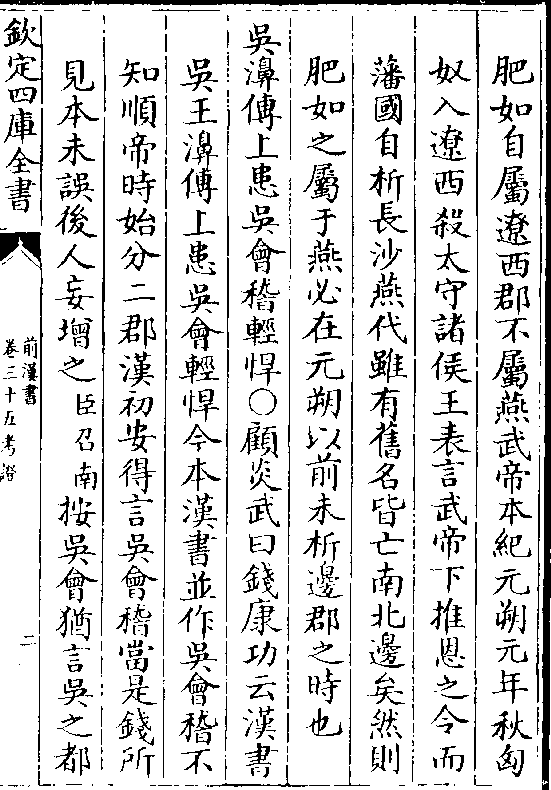 肥如自屬遼西郡不屬燕武帝本紀元朔元年秋匈
奴入遼西殺太守諸侯王表言武帝下推恩之令而
藩國自析長沙燕代雖有舊名皆亡南北邊矣然則
肥如之屬于燕必在元朔以前未析邊郡之時也
吳濞傳上患吳會稽輕悍○顧炎武曰錢康功云漢書
吳王濞傳上患吳會輕悍今本漢書並作吳會稽不
知順帝時始分二郡漢初安得言吳會稽當是錢所
見本未誤後人妄增之臣召南按吳會猶言吳之都
欽定四庫全書
前漢書
卷三十五考證
二